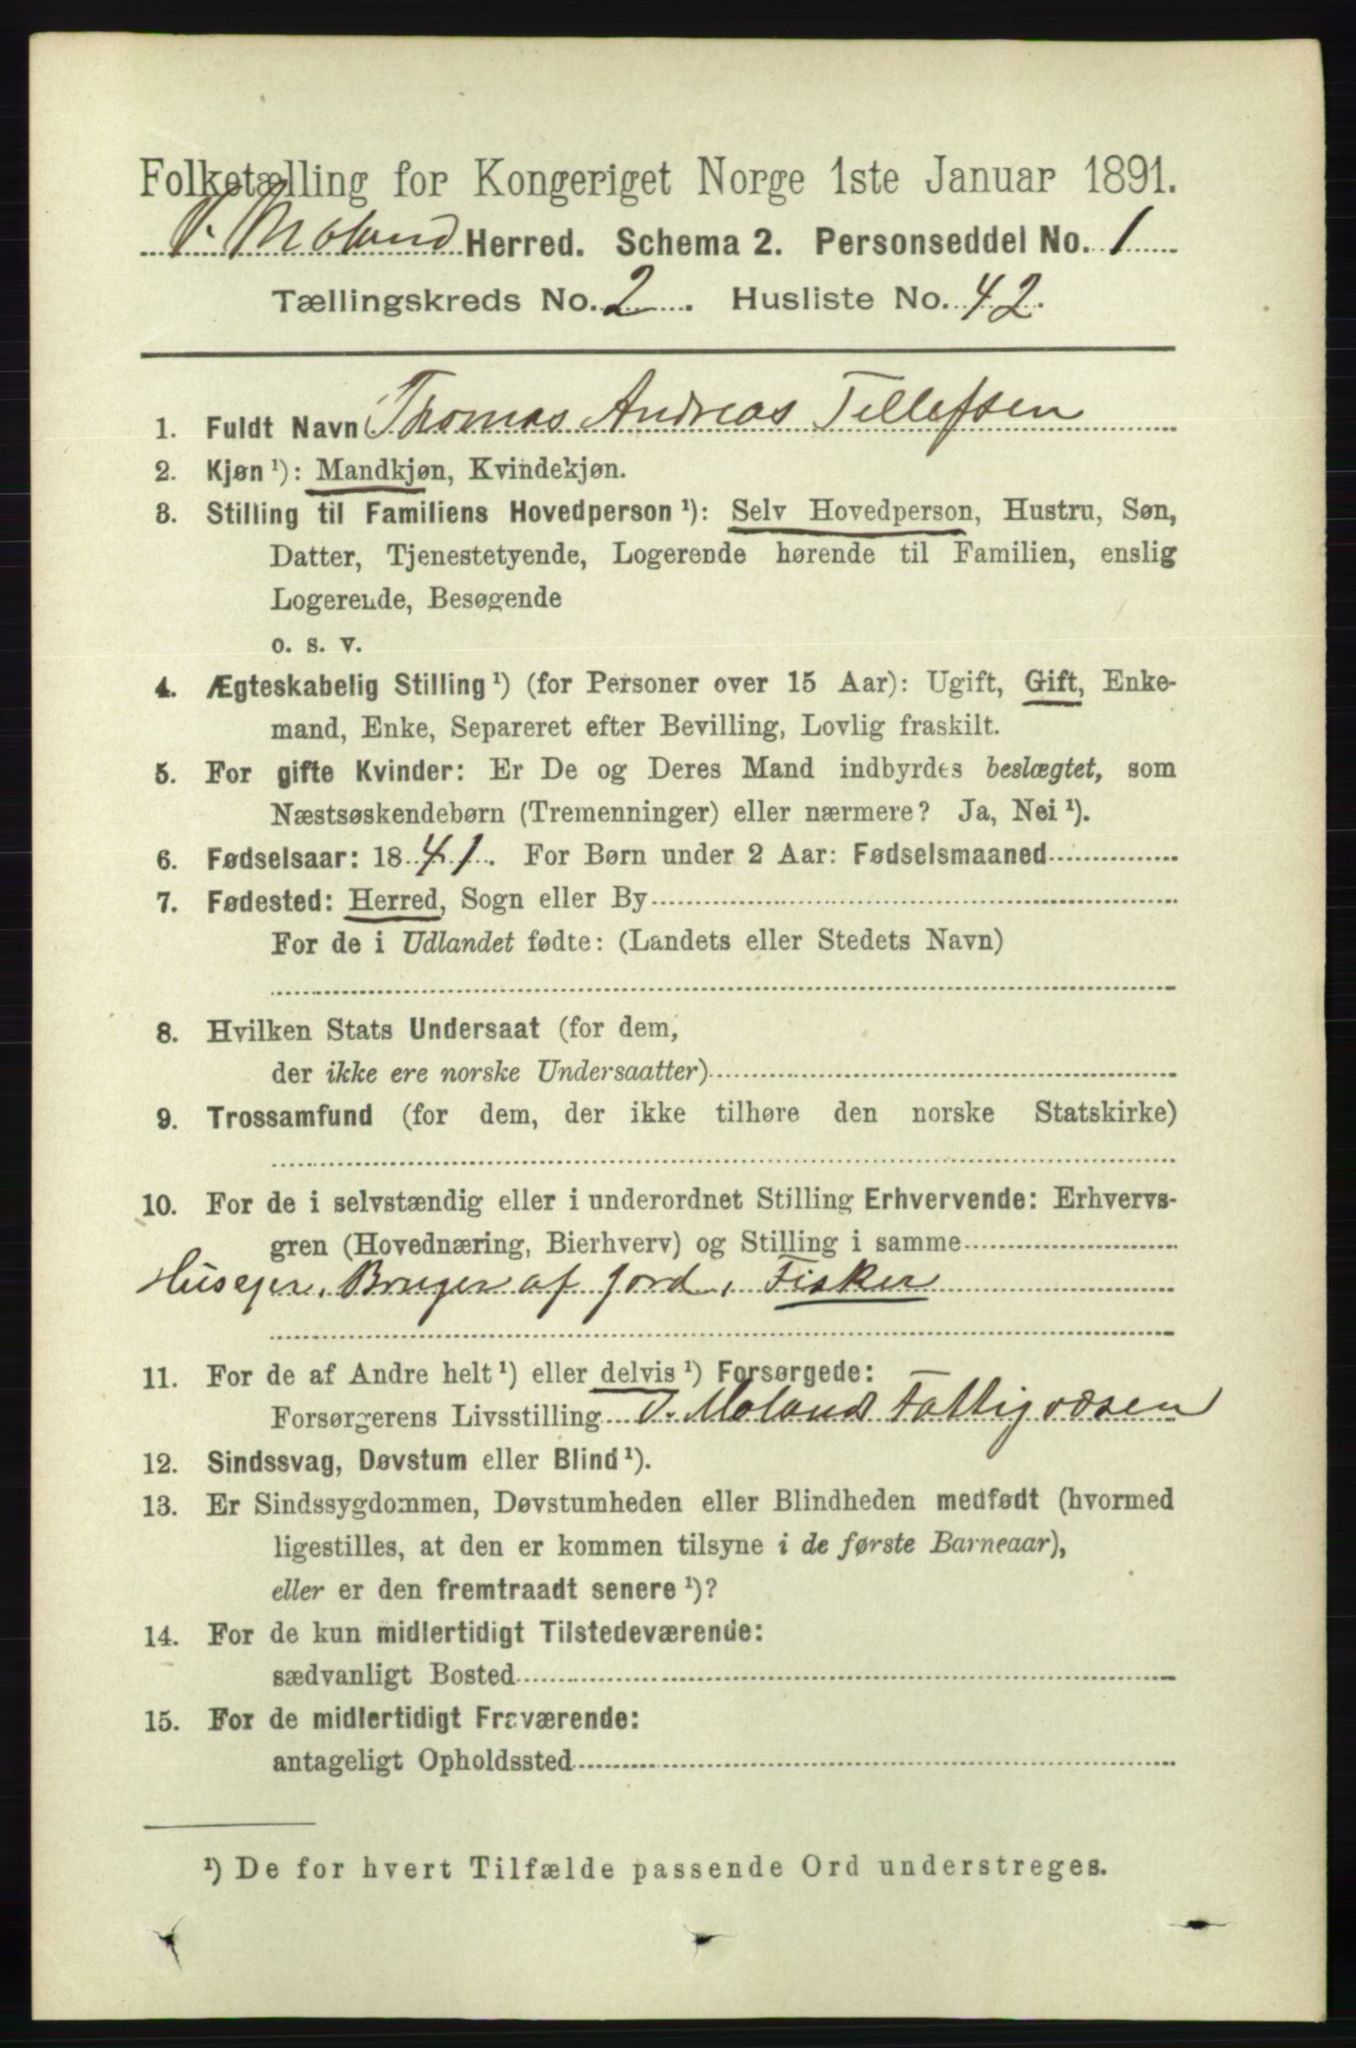 Folketælling for Kongeriget Norge 1ste Januar 1891.
V. Moland Herred. Schema 2. Personseddel No. 1
Tællingskreds No. 2. Husliste No. 42.
1. Fuldt Navn Thomas Andreas Tellefsen
2. Kjøn ¹): Mandkjøn, Kvindekjøn.
3. Stilling til Familiens Hovedperson ¹): Selv Hovedperson, Hustru, Søn,
Datter, Tjenestetyende, Logerende hørende til Familien, enslig
Logerende, Besøgende
o. s. v.
4. Ægteskabelig Stilling ¹) (for Personer over 15 Aar): Ugift, Gift, Enke-
mand, Enke, Separeret efter Bevilling, Lovlig fraskilt.
5. For gifte Kvinder: Er De og Deres Mand indbyrdes beslægtet, som
Næstsøskendebørn (Tremenninger) eller nærmere? Ja, Nei ¹).
6. Fødselsaar: 1841. For Børn under 2 Aar: Fødselsmaaned
7. Fødested: Herred, Sogn eller By
For de i Udlandet fødte: (Landets eller Stedets Navn)
8. Hvilken Stats Undersaat (for dem,
der ikke ere norske Undersaatter)
9. Trossamfund (for dem, der ikke tilhøre den norske Statskirke)
10. For de i selvstændig eller i underordnet Stilling Erhvervende: Erhvervs-
gren (Hovednæring, Bierhverv) og Stilling i samme
Husejer, Bruger af jord, Fisker
11. For de af Andre helt ¹) eller delvis ¹) Forsørgede:
Forsørgerens Livsstilling V. Molands Fattigvæsen
12. Sindssvag, Døvstum eller Blind ¹).
13. Er Sindssygdommen, Døvstumheden eller Blindheden medfødt (hvormed
ligestilles, at den er kommen tilsyne i de første Barneaar),
eller er den fremtraadt senere ¹)?
14. For de kun midlertidigt Tilstedeværende:
sædvanligt Bosted
15. For de midlertidigt Fraværende:
antageligt Opholdssted
¹) De for hvert Tilfælde passende Ord understreges.